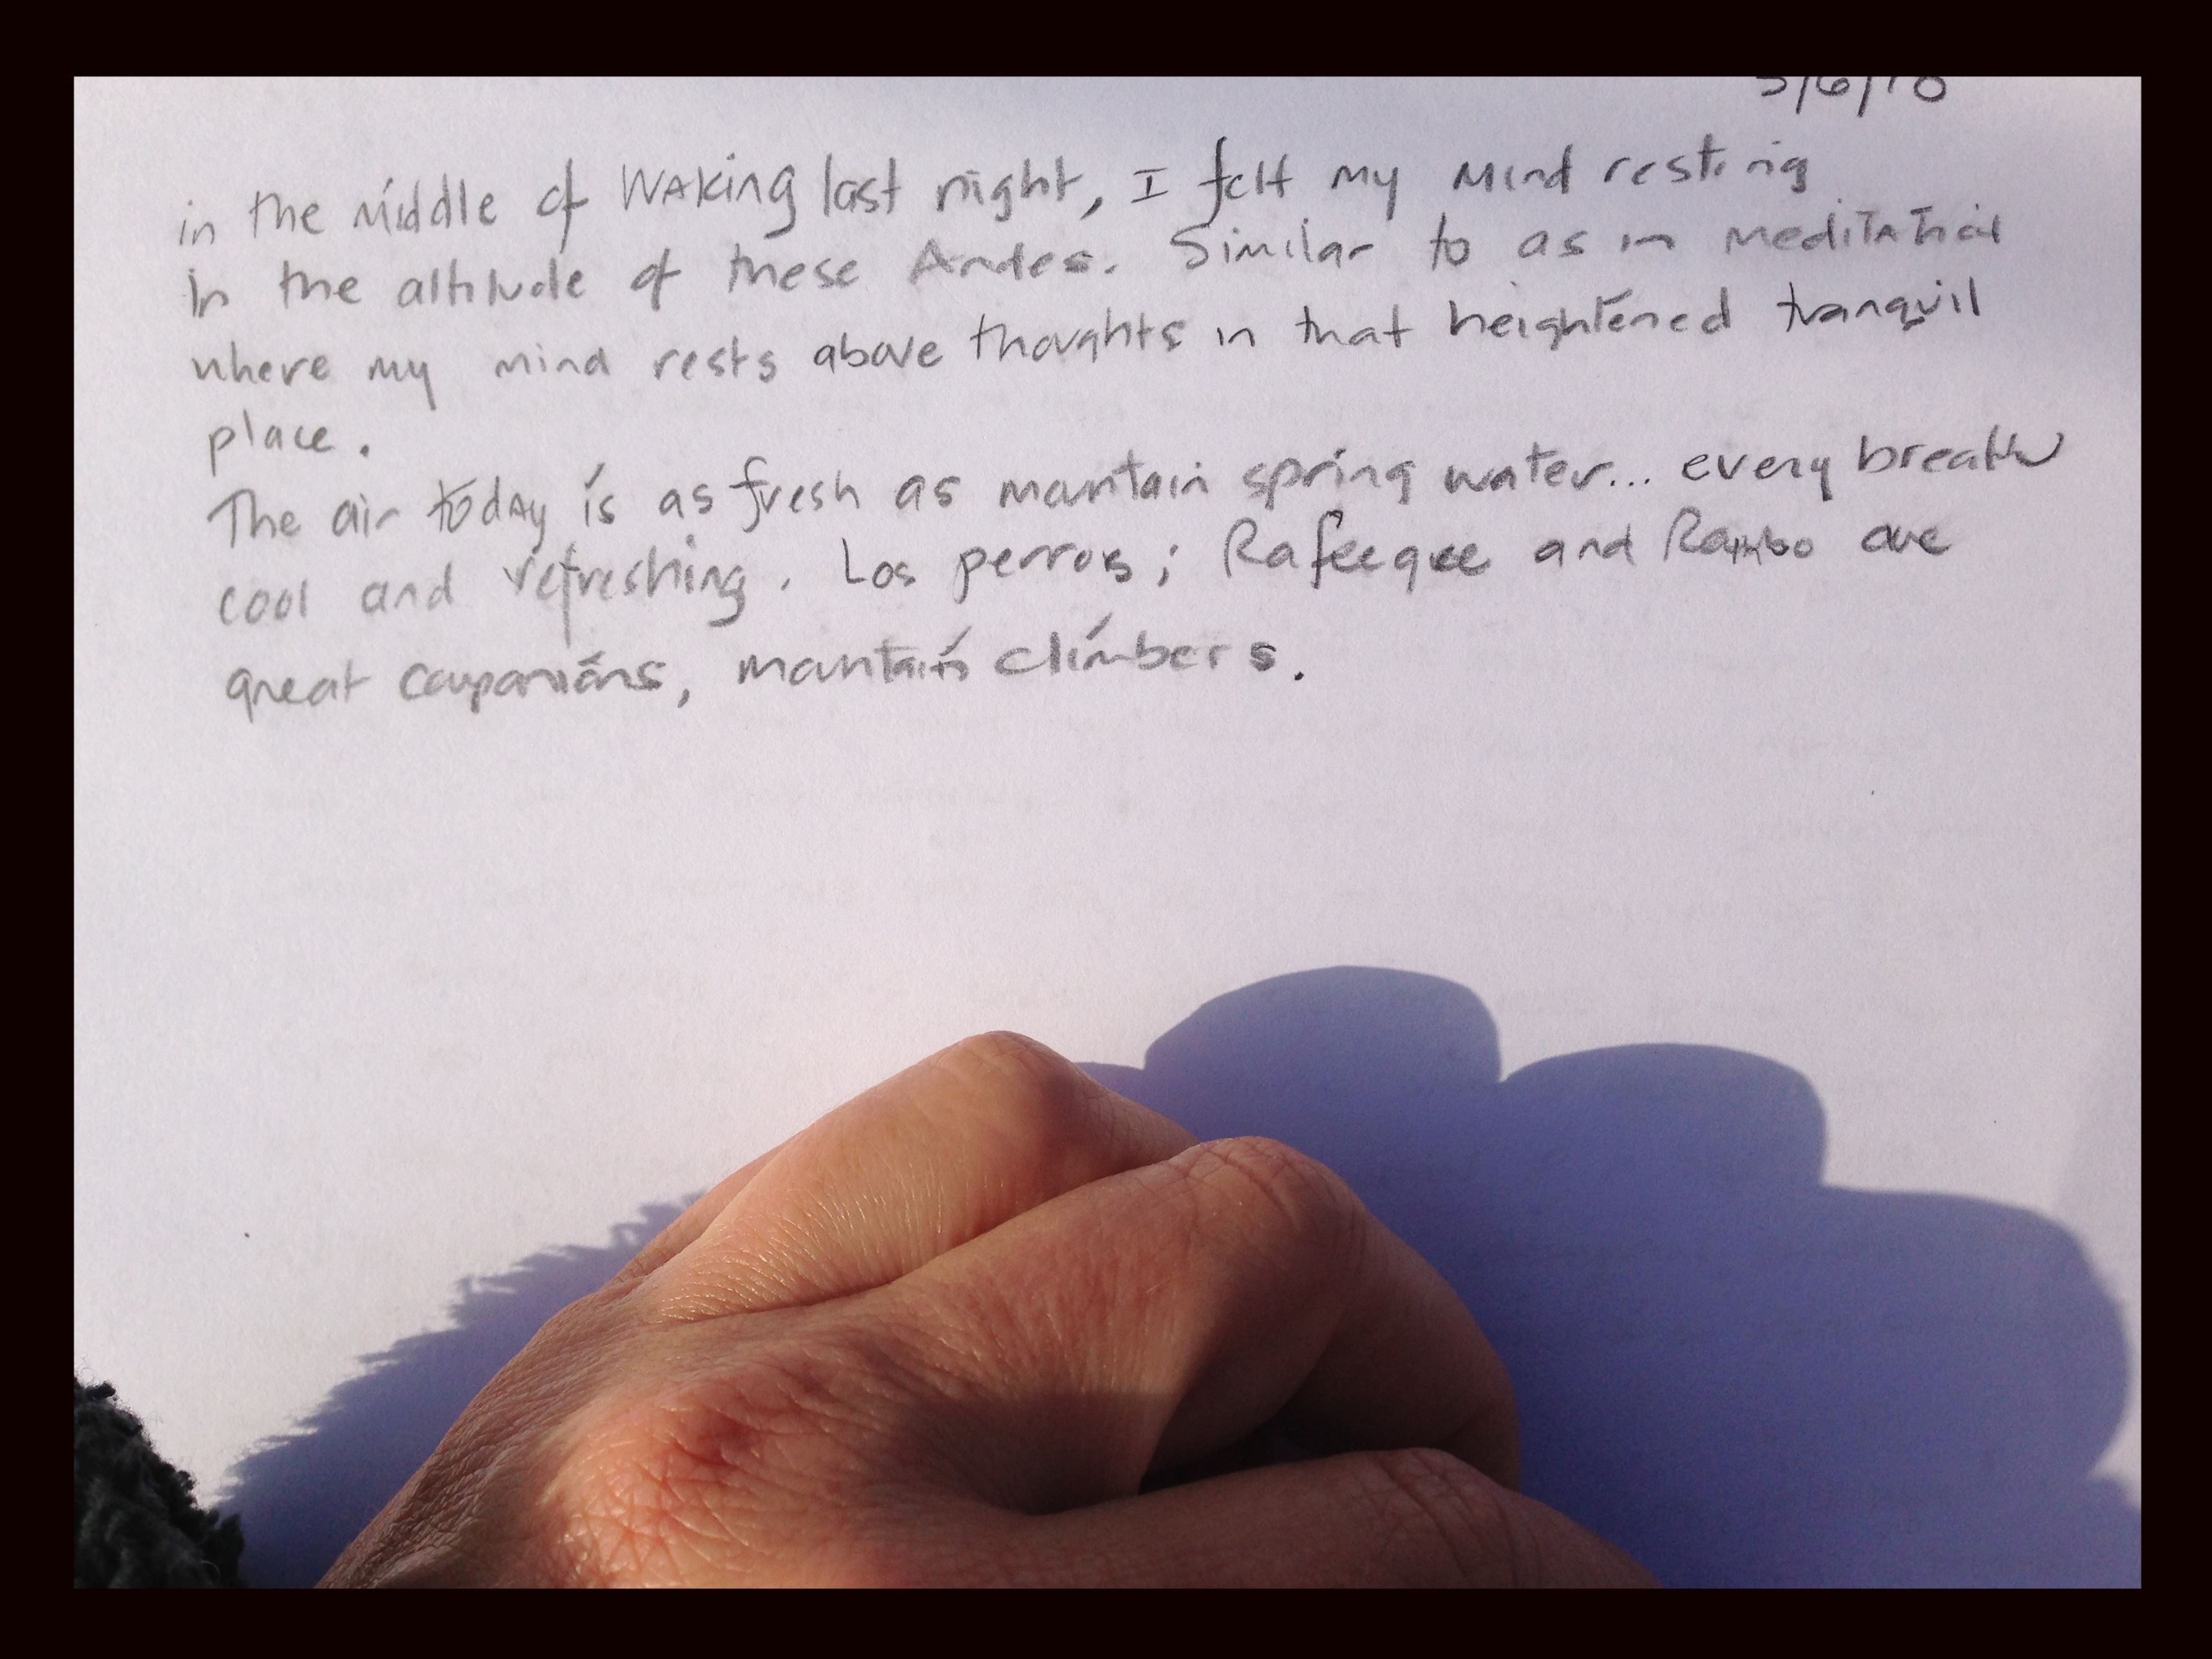 5/6/18
in the middle of waking last night, I felt my mind resting
in the altitude of these Andes. Similar to as in meditation
where my mind rests above thoughts in that heightened tranquil
place.
The air today is as fresh as mountain spring water... every breath
cool and refreshing. Los perros; Rafeeque and Rambo are
great companions, mountain climbers.